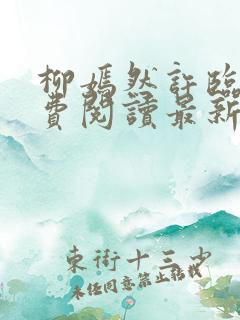 柳嫣然許臨
費閱讀最新
東街十三少
未經同意禁止轉載